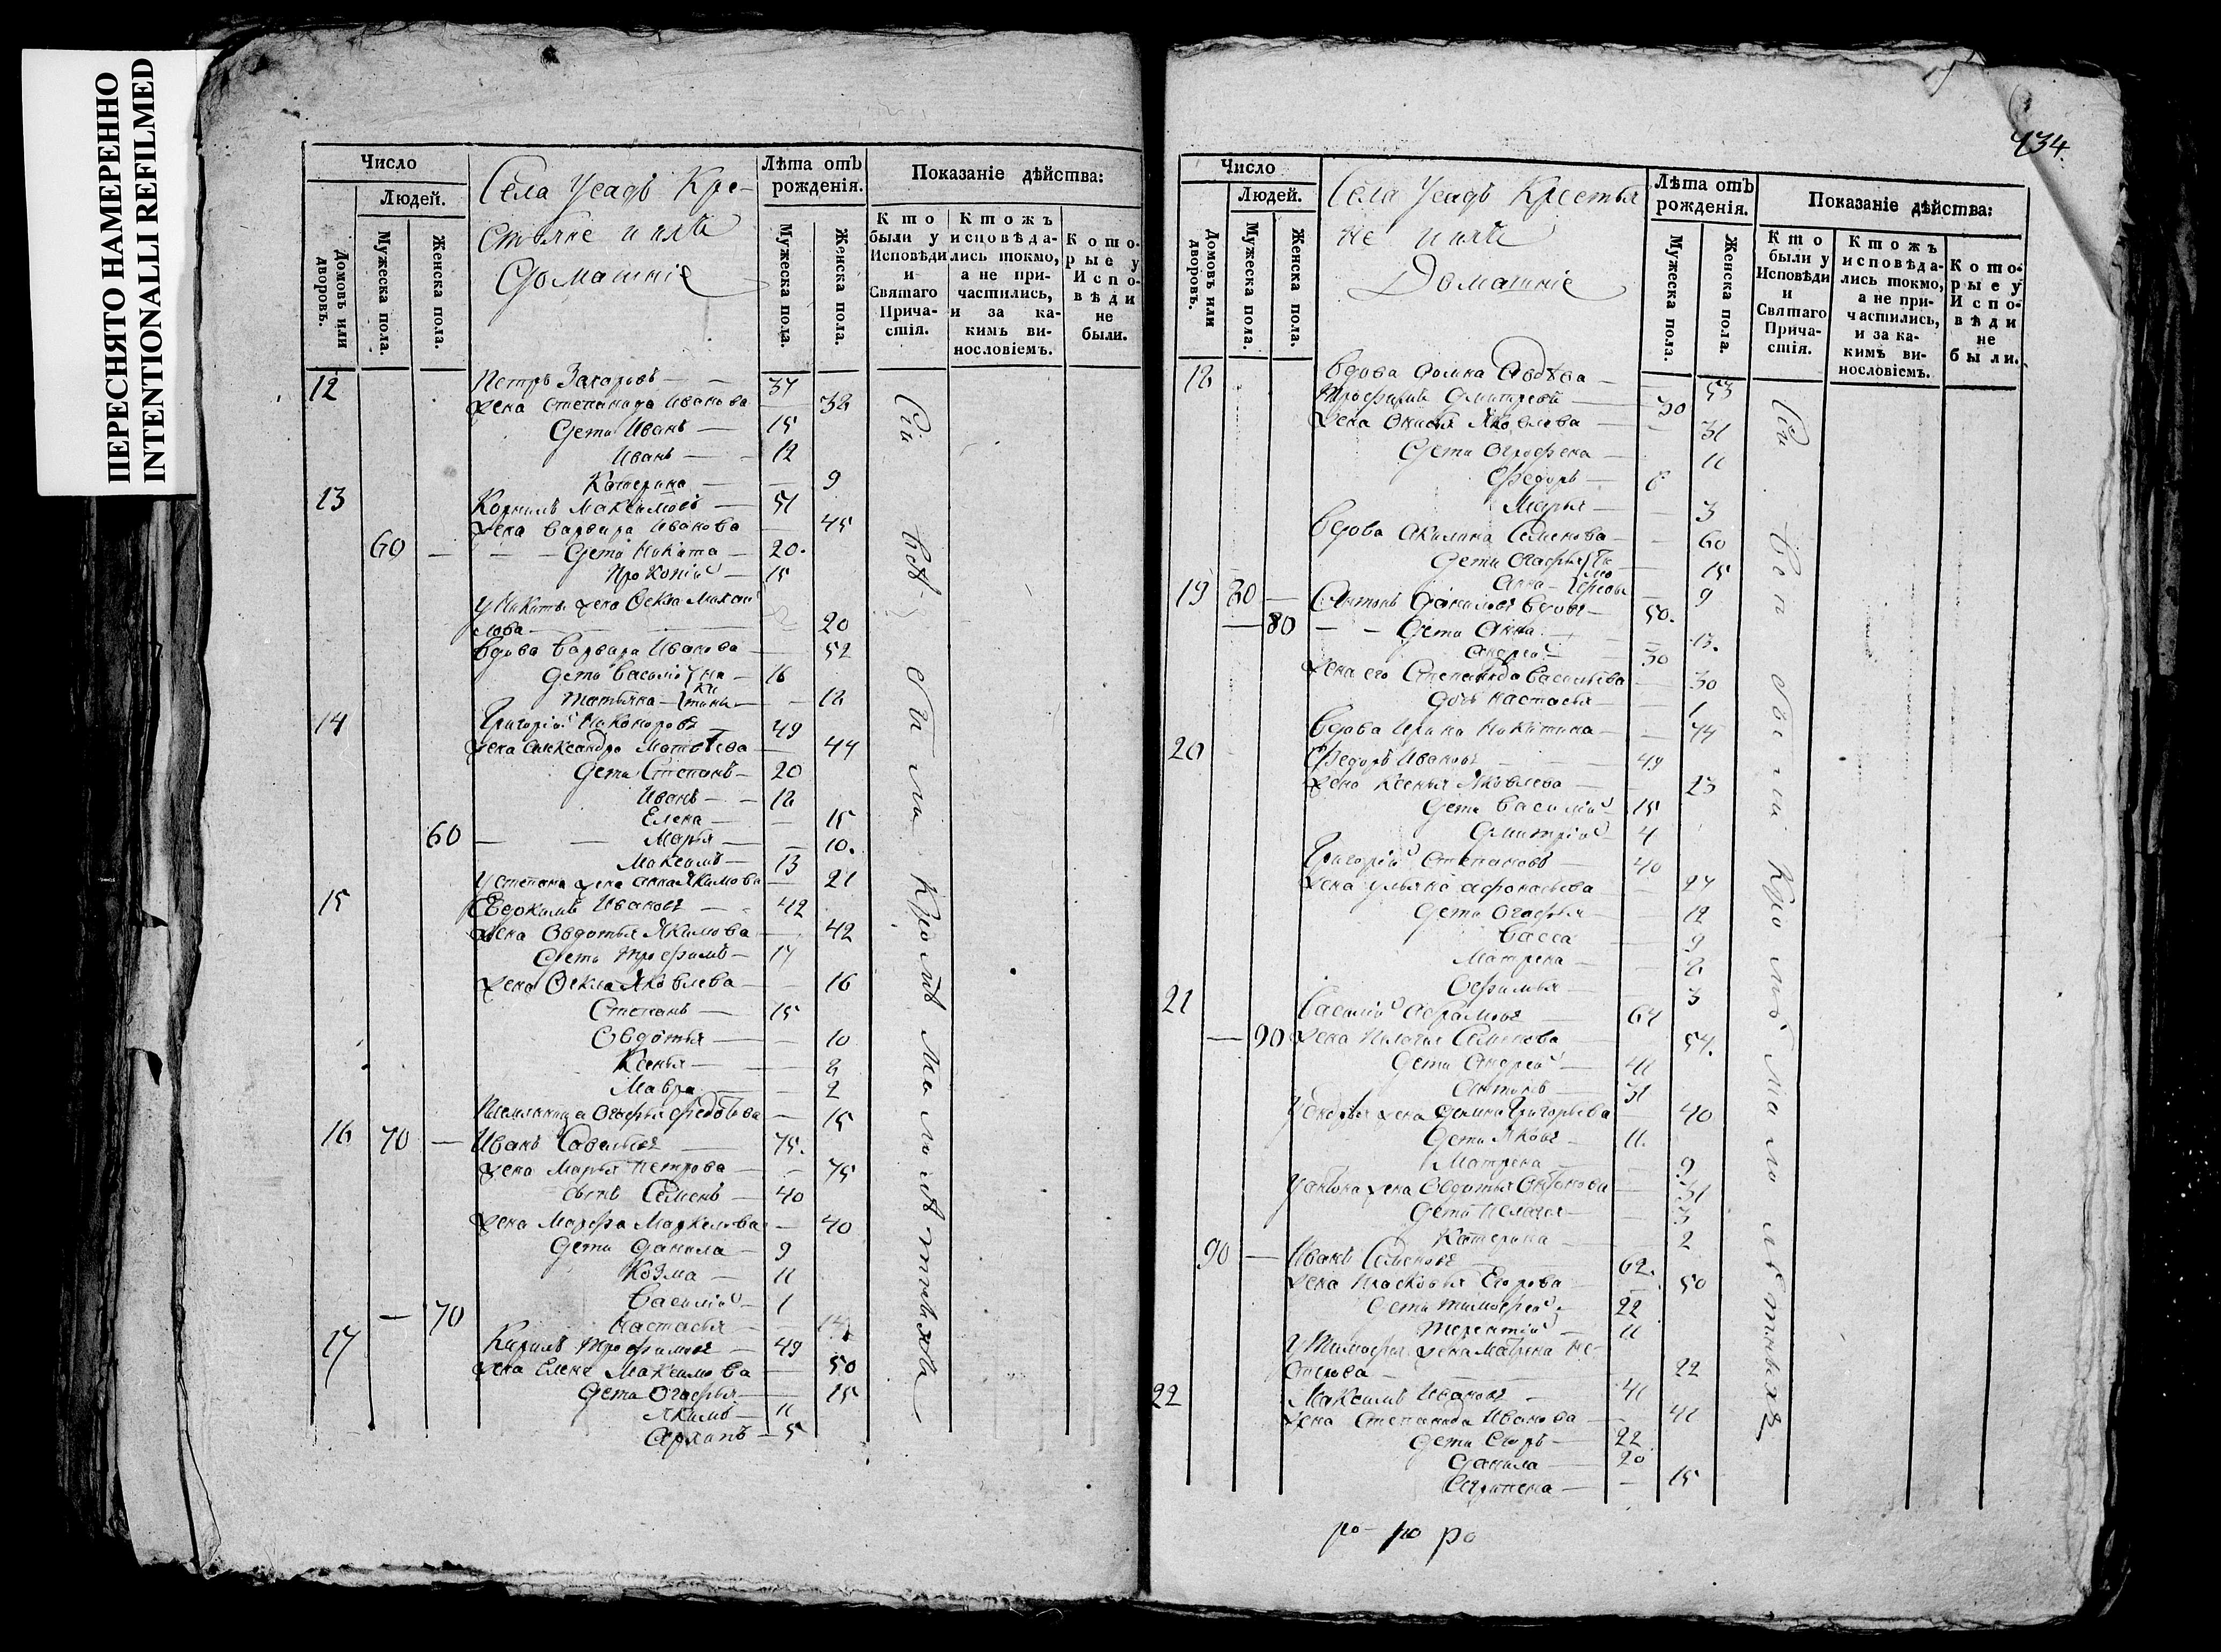 ПЕРЕСНЯТО НАМЕРЕННО
INTENTIONALLI REFILMED
Число
Людей.
Домовъ или дворовъ.
Мужеска пола.
Женска пола.
Села Усадъ Кре-
стьяне и ихъ
Домашніе
Лѣта отъ рожденія.
Мужеска пола.
Женска пола.
Показаніе дѣйства:
Кто были у Исповѣди и Святаго Причастія.
Ктожъ исповѣдались токмо, а не причастились, и за какимъ винословіемъ.
Которые у Исповѣди не были.
12 Петръ Захаровъ — 37
жена Степанида Иванова — 32
Дети Иванъ — 15
Иванъ — 12
Катерина — 9
13 Корнилъ Максимовъ — 51
жена Варвара Иванова — 45
60 — Дети Никита — 20.
Прокопій — 15
У Никиты жена Ѳекла Михай
лова — 20
Вдова Варвара Иванова — 52
Дети Василій — 16
Татьяна — 12
14 Григорій Никоноровъ — 49
жена Александра Матвѣева — 44
Дети Степанъ — 20
Иванъ — 12
Елена — 15
60 — Марья — 10.
Максимъ — 13
У Степана жена Анна Якимова — 21
15 Евдокимъ Ивановъ — 42
жена Овдотья Якимова — 42
Дети Трофимъ — 17
жена Ѳекла Яковлева — 16
Степанъ — 15
Овдотья — 10
Ксенья —
Мавра — 2
Племянница Огафья — 15
16 70 — Иванъ Савельевъ — 75.
жена Марья Петрова — 75
сынъ Семенъ — 40
жена Марфа Маркелова — 40
Дети Данила — 9
Козма — 11
Василій — 1
— 70 Настасья —
17 Кирилъ Трофимовъ — 49
жена Елена Максимова — 50
Дети Огафья — 15
Якимъ — 11
Архипъ — 5
Сіи всѣ были кромѣ малолѣтныхъ
134.
Число
Людей.
Домовъ или дворовъ.
Мужеска пола.
Женска пола.
Села Усадъ Крестья
не и ихъ
Домашніе
Лѣта отъ рожденія.
Мужеска пола.
Женска пола.
Показаніе дѣйства:
Кто были у Исповѣди и Святаго Причастія.
Ктожъ исповѣдались токмо, а не причастились, и за какимъ винословіемъ.
Которые у Исповѣди не были.
18 Вдова Домна Авдѣева — 53
Дмитревъ — 30
жена Яковлева — 31
Дети Огрофена — 11
Ѳедоръ —
Марья — 3
Вдова Акилина Семенова — 60
Дети Огафья — 15
Анна — 9
19 Антонъ Даниловъ вдовъ — 50.
— 80 — Дети Анна — 13.
Андрей — 30
жена его Степанида Васильева — 30
дочь Настасья — 1
Вдова Ирина Никитина — 44
20 Ѳедоръ Ивановъ — 49
жена Ксенья Яковлева — 23
Дети Василій — 15
Дмитрій — 4
Григорій Степановъ — 40
жена Ульяна Афонасьева — 27
Дети Огафья — 12
Васса — 9
Матрена —
Офимья — 3
21 Василій —
— 90 жена Пилагея Семенова — 54.
Дети Андрей — 41
Антонъ — 31
У Андрея жена Домна Григорьева — 40
Дети Яковъ — 11.
Матрена — 9
У Антона жена Овдотья Онтонова — 31
Дети Пелагея — 3
Катерина — 2
90 — Иванъ Семеновъ — 62.
жена Прасковья Егорова — 50
Дети Тимофей — 22
Терентій — 11
У Тимофея жена Матрена Пе-
трова — 22
22 Максимъ Ивановъ — 41
жена Степанида Иванова — 41
Дети Егоръ — 22
Данила — 20
— 15
Сіи всѣ были кромѣ малолѣтныхъ
ро ро ро